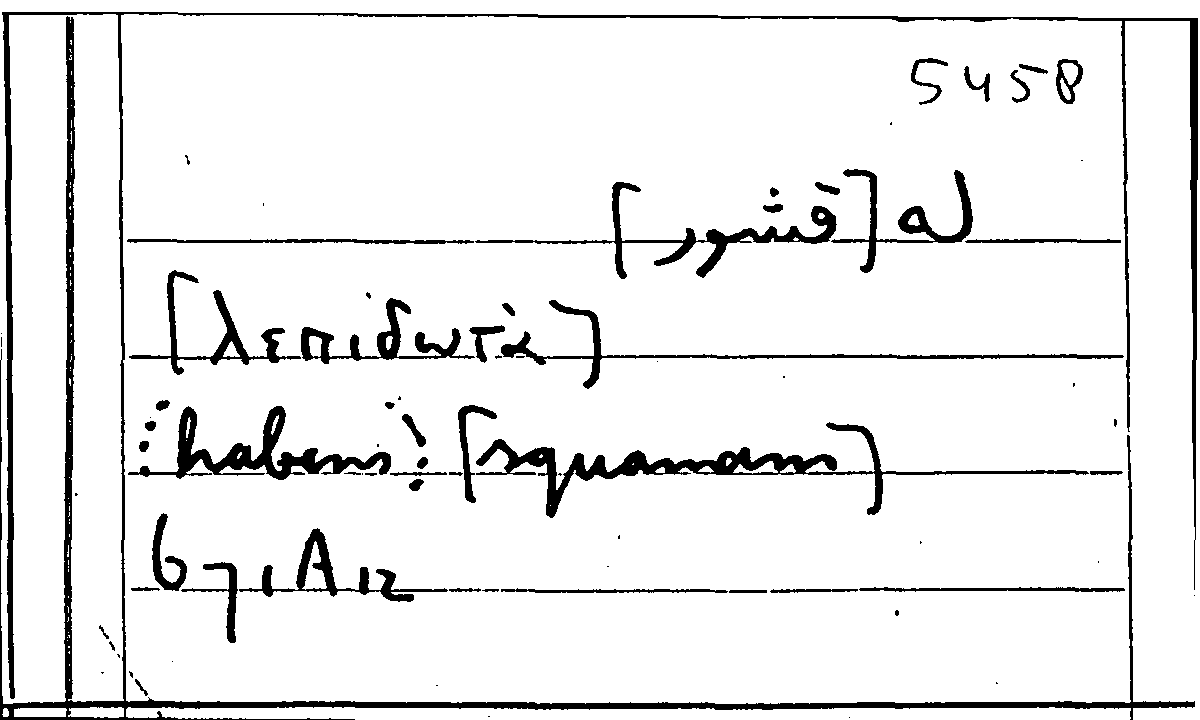 5458
له [قشور]
[λεπιδωτά]
⋮habens⋮ [squamam]
671A12